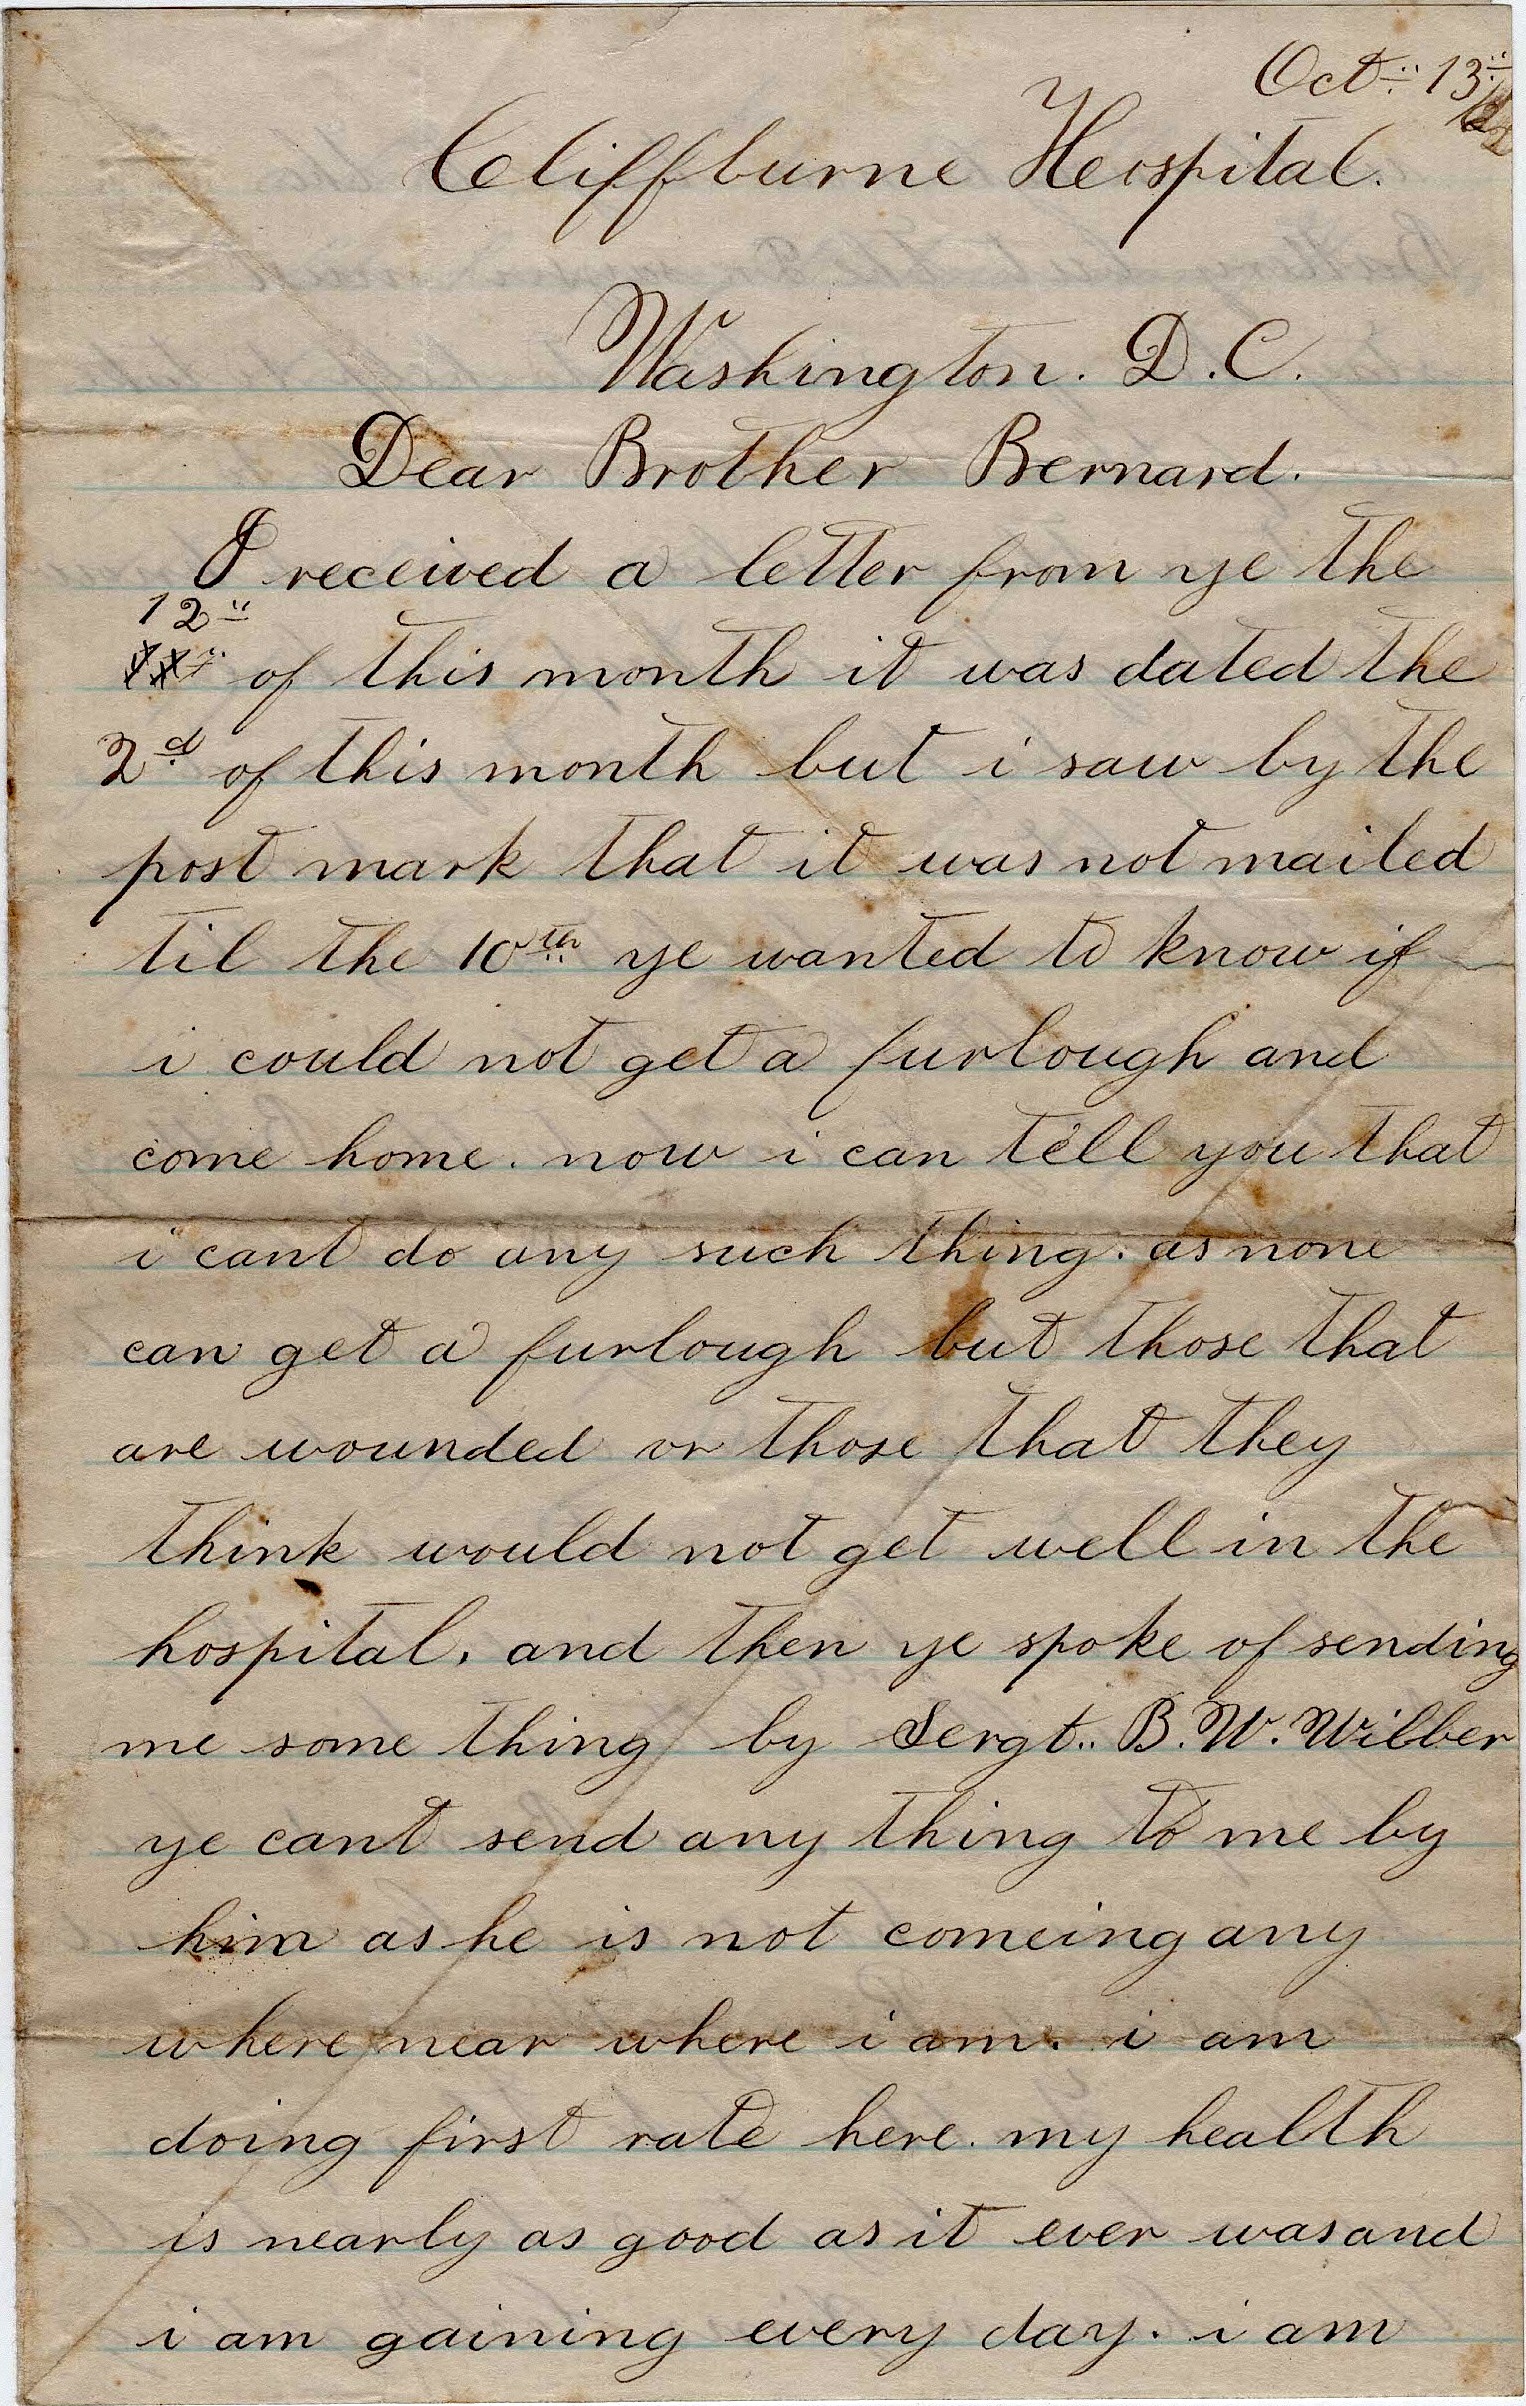 Oct 13
Cliffburne Hospital.
Washington. D.C.
Dear Brother Bernard.
I received a letter from ye the
12
of this month it was dated the
2d of this month but i saw by the
post mark that it was not mailed
til the 10th ye wanted to know if
i could not get a furlough and
come home. now i can tell you that
i cant do any such thing. as none
can get a furlough but those that
are wounded or those that they
think would not get well in the
hospital. and then ye spoke of sending
me some thing by Sergt.. B.W. Wilber
ye cant send any thing to me by
him as he is not comeing any
where near where i am. i am
doing first rate here. my health
is nearly as good as it ever was and
i am gaining every day. i am